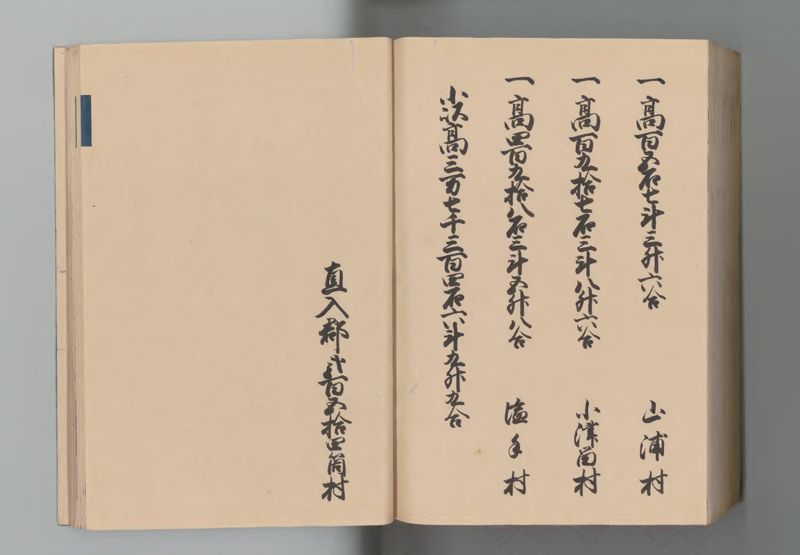 一高百五石七斗三升六合 山浦村
一高百九拾七石三斗八升六合 小津留村
一高四百九拾八石三斗五升八合 塩手村
小以高三万七千三百四石六斗九升九合
直入郡弐百五拾四箇村